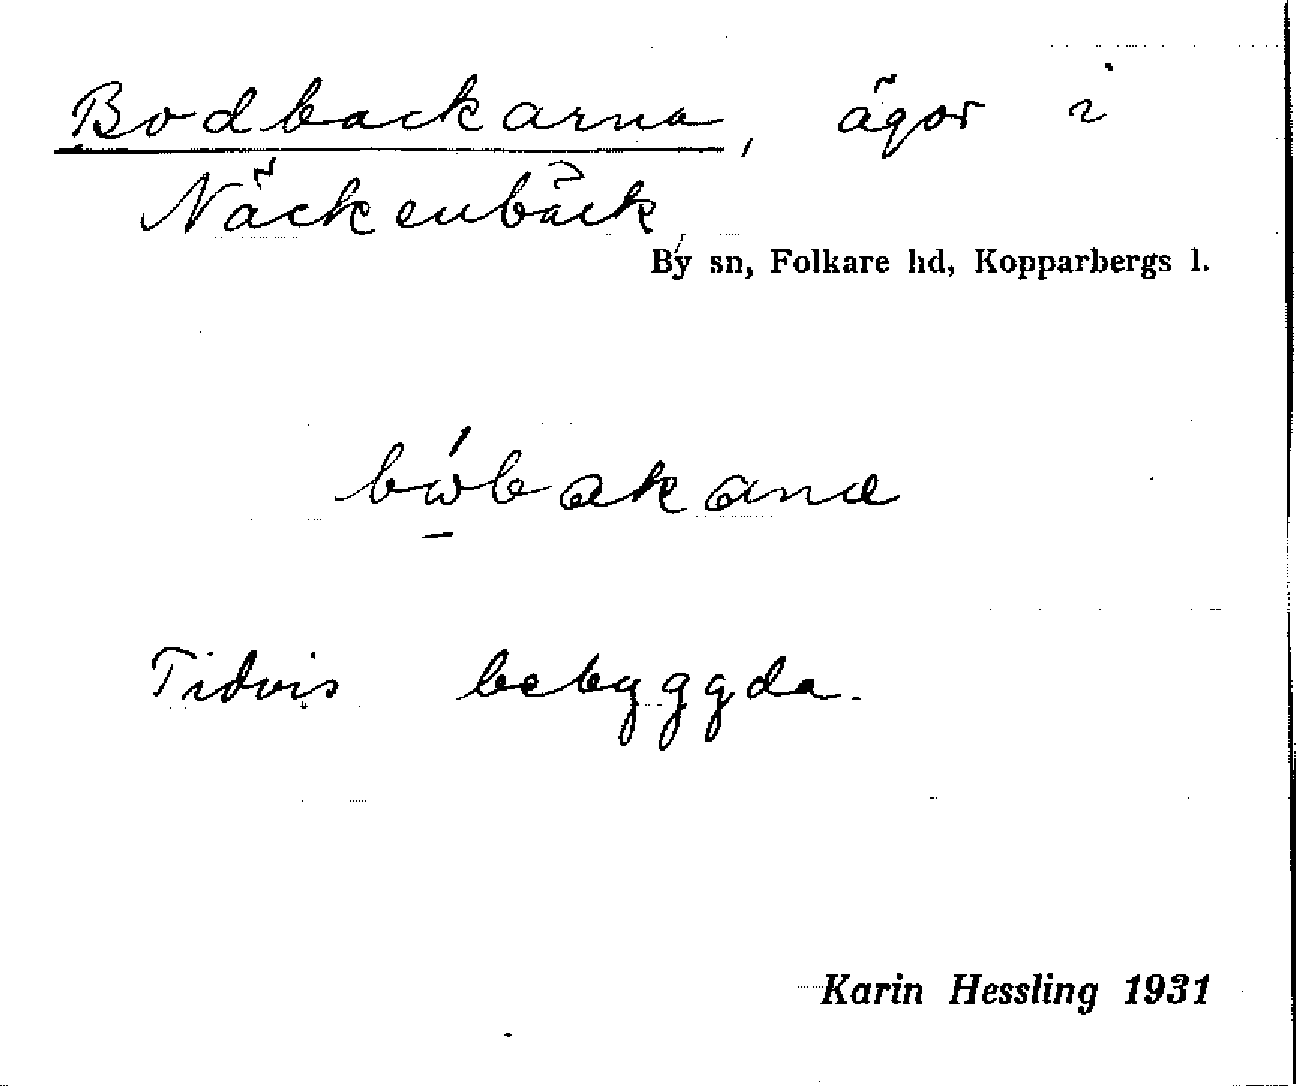 Bodbackarna, ägor i
Näckenbäck,
By sn, Folkare hd, Kopparbergs l.
bώbakanæ
Tidvis bebyggda.
Karin Hessling 1931